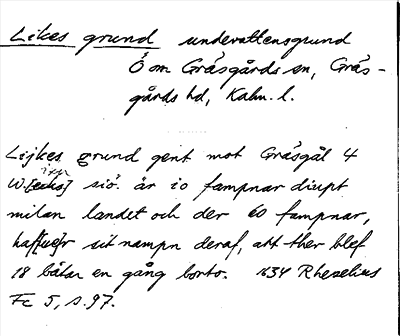 Likes grund undervattensgrund
Ö om Gräsgårds sn, Gräs-
gårds hd, Kalm. l.
Lijkes grund gent mot Gräsgål 4
W.[eckis] siö. är 20 fampnar diupt
milan landet och der 60 fampnar,
haf[ue]r sit nampn deraf, att ther blef
18 båtar en gång borto. 1634 Rhezelius
Fc 5, s. 97.